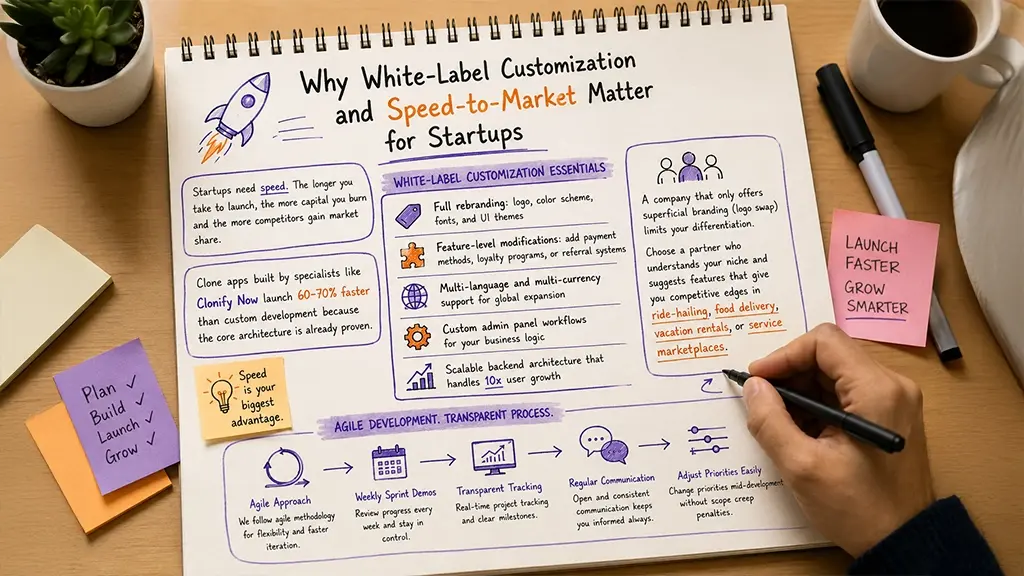 Why White-Label Customization
and Speed-to-Market Matter
for Startups
Startups need speed. The longer you
take to launch, the more capital you burn
and the more competitors gain market
share.
Clone apps built by specialists like
Clonify Now launch 60-70% faster
than custom development because
the core architecture is already proven.
Speed
is your
biggest
advantage.
WHITE-LABEL CUSTOMIZATION ESSENTIALS
Full rebranding: logo, color scheme,
fonts, and UI themes
Feature-level modifications: add payment
methods, loyalty programs, or referral systems
Multi-language and multi-currency
support for global expansion
Custom admin panel workflows
for your business logic
Scalable backend architecture that
handles 10x user growth
A company that only offers
superficial branding (logo swap)
limits your differentiation.
Choose a partner who
understands your niche and
suggests features that give
you competitive edges in
ride-hailing, food delivery,
vacation rentals, or service
marketplaces.
LAUNCH
FASTER
GROW
SMARTER
Plan ✓
Build ✓
Launch ✓
Grow ✓
AGILE DEVELOPMENT. TRANSPARENT PROCESS.
Agile Approach
We follow agile methodology
for flexibility and faster
iteration.
Weekly Sprint Demos
Review progress every
week and stay in
control.
Transparent Tracking
Real-time project tracking
and clear milestones.
Regular Communication
Open and consistent
communication keeps
you informed always.
Adjust Priorities Easily
Change priorities mid-development
without scope creep
penalties.